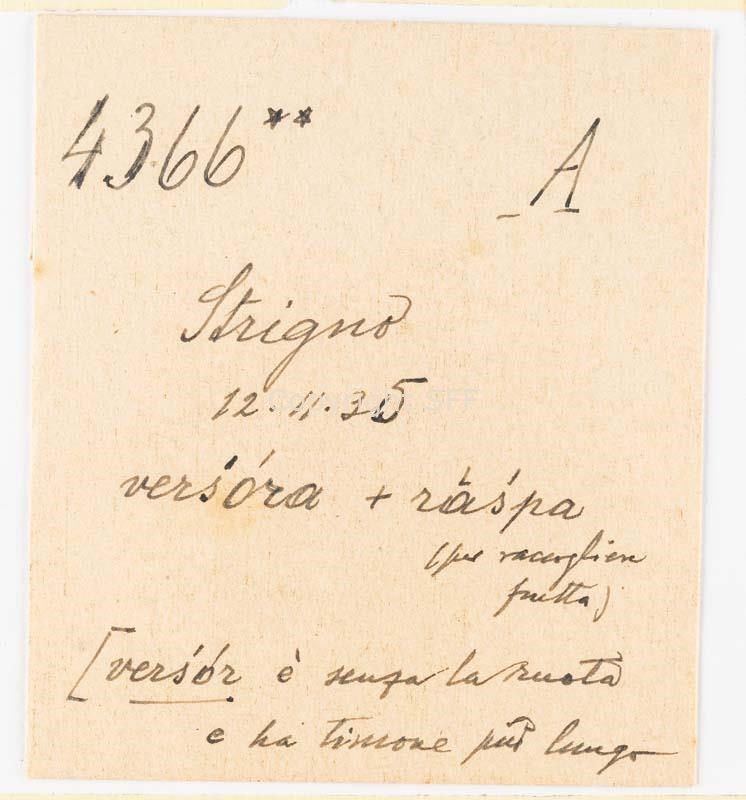 4366** A
Strigno
12.11.35
verśóra + ráśpa
(per raccogliere
frutta)
[verśór è senza la ruota
e ha timone più lungo